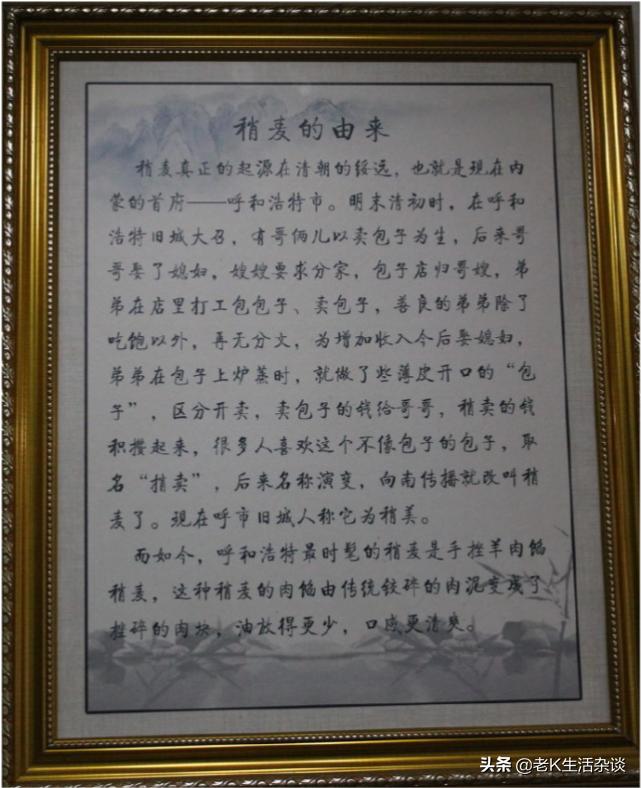 稍麦的由来
稍麦真正的起源在清朝的绥远，也就是现在内
蒙的首府——呼和浩特市。明末清初时，在呼和
浩特旧城大召，有哥俩儿以卖包子为生，后来哥
哥娶了媳妇，嫂嫂要求分家，包子店归哥嫂，弟
弟在店里打工包包子、卖包子，善良的弟弟除了
吃饱以外，再无分文，为增加收入今后娶媳妇，
弟弟在包子上炉蒸时，就做了些薄皮开口的“包
子”，区分开卖，卖包子的钱给哥哥，稍卖的钱
积攒起来，很多人喜欢这个不像包子的包子，取
名“捎卖”，后来名称演变，向南传播就改叫稍
麦了。现在呼市旧城人称它为稍美。
而如今，呼和浩特最时髦的稍麦是手挫羊肉馅
稍麦，这种稍麦的肉馅由传统铰碎的肉泥变成了
挫碎的肉块，油放得更少，口感更清爽。
头条 @老K生活杂谈